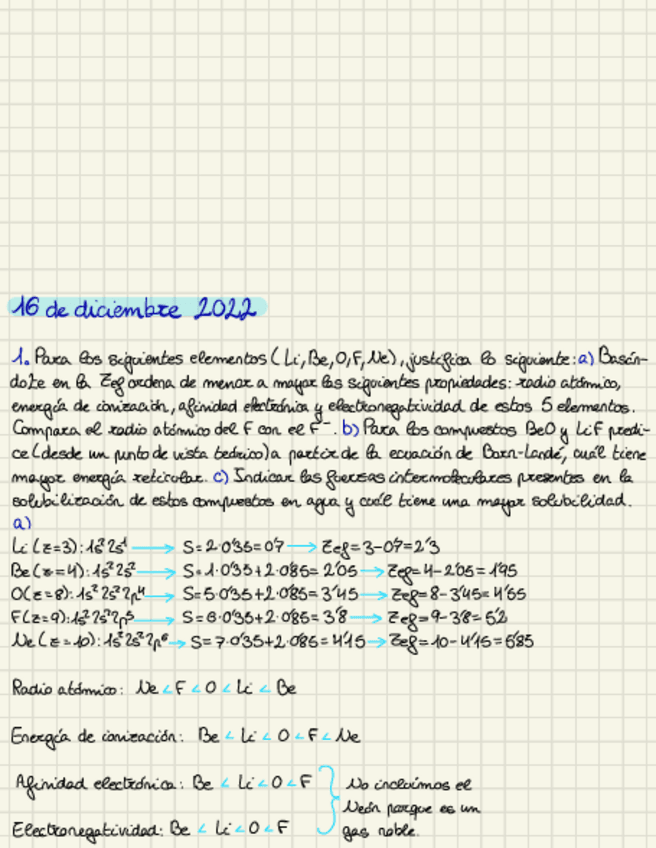 16 de diciembre 2022
1. Para los siguientes elementos (Li, Be, O, F, Ne), justifica lo siguiente: a) Basán-
dote en la Zef ordena de menor a mayor las siguientes propiedades: radio atómico,
energía de ionización, afinidad electrónica y electronegatividad de estos 5 elementos.
Compara el radio atómico del F con el F⁻. b) Para los compuestos BeO y LiF predi-
ce (desde un punto de vista teórico) a partir de la ecuación de Born-Landé, cuál tiene
mayor energía reticular. c) Indicar las fuerzas intermoleculares presentes en la
solubilización de estos compuestos en agua y cuál tiene una mayor solubilidad.
a)
Li (z=3): 1s² 2s¹ → S=2·0'35=0'7 → Zef=3-0'7=2'3
Be (z=4): 1s² 2s² → S=1·0'35+2·0'85=2'05 → Zef=4-2'05=1'95
O (z=8): 1s² 2s² 2p⁴ → S=5·0'35+2·0'85=3'45 → Zef=8-3'45=4'55
F (z=9): 1s² 2s² 2p⁵ → S=6·0'35+2·0'85=3'8 → Zef=9-3'8=5'2
Ne (z=10): 1s² 2s² 2p⁶ → S=7·0'35+2·0'85=4'15 → Zef=10-4'15=5'85
Radio atómico: Ne < F < O < Li < Be
Energía de ionización: Be < Li < O < F < Ne
Afinidad electrónica: Be < Li < O < F
Electronegatividad: Be < Li < O < F
No incluimos el
Neón porque es un
gas noble.